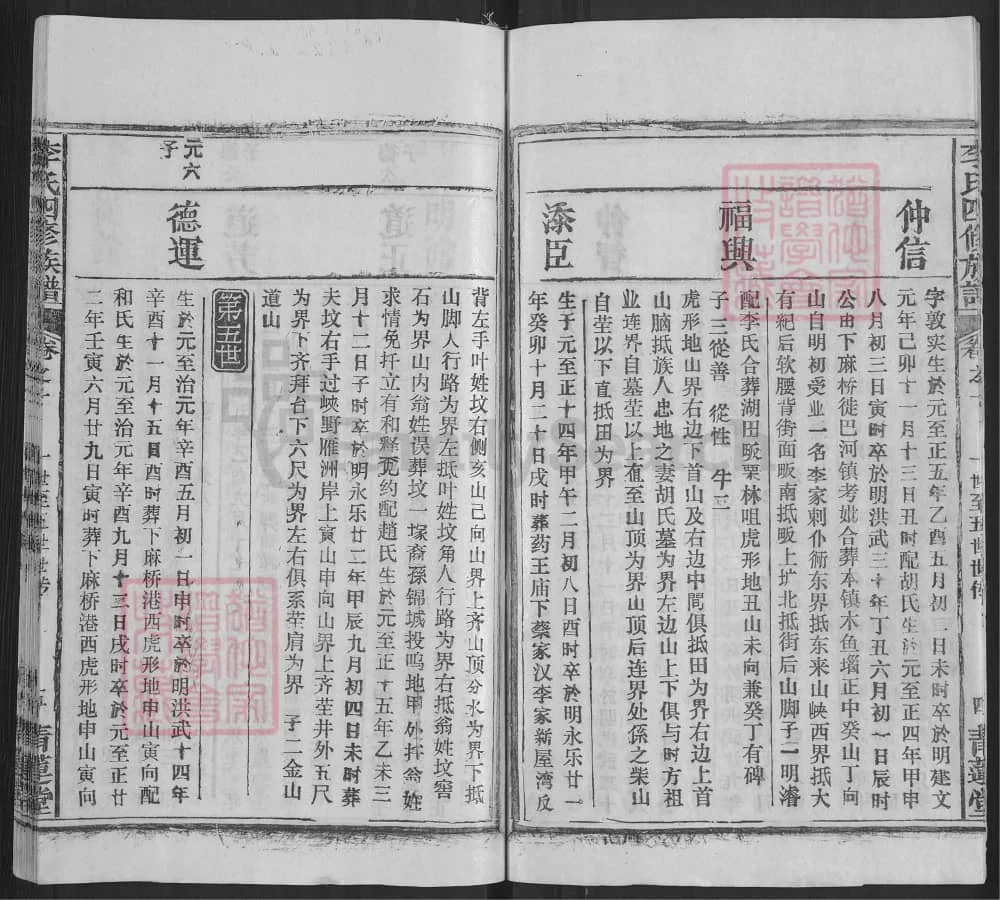 李氏四修族譜
仲信
字敦实生於元至正五年乙酉五月初三日未时卒於明建文
元年己卯十一月十三日丑时配胡氏生於元至正四年甲申
八月初三日寅时卒於明洪武三十年丁丑六月初一日辰时
公由下麻桥徙巴河镇考妣合葬本镇木鱼瑙正中癸山丁向
山自明初受业一名李家刺仆衕东界抵东来山峡西界抵大
有紀后软腰背街面畈南抵畈上圹北抵街后山脚子二明濬
福興
配李氏合葬湖田畈栗林咀虎形地丑山未向兼癸丁有碑
子三從善 從性 牛三
虎形地山界右边下首山及右边中間俱抵田为界右边上首
山脑抵族人忠地之妻胡氏墓为界左边山上下俱与时方祖
业连界自墓茔以上直至山顶为界山顶后连界处係之柴山
自茔以下直抵田为界
添臣
生于元至正十四年甲午二月初八日酉时卒於明永乐廿一
年癸卯十月二十日戌时葬药王庙下蔡家汉李家新屋湾反
四 青蓮堂
背左手叶姓坟右侧亥山己向山界上齐山顶分水为界下抵
山脚人行路为界左抵叶姓坟角人行路为界右抵翁姓坟窖
石为界山内翁姓误葬坟一塚裔孫锦城投鸣地甲外扦翁姓
求情免扦立有和释宽约配趙氏生於元至正十五年乙未三
月十二日子时卒於明永乐廿二年甲辰九月初四日未时葬
夫坟右手过峡野雁洲岸上寅山申向山界上齐茔井外五尺
为界下齐拜台下六尺为界左右俱系茔肩为界 子二金山
道山
第五世
元六子
德運
生於元至治元年辛酉五月初一日申时卒於明洪武十四年
辛酉十一月十五日酉时葬下麻桥港西虎形地申山寅向配
和氏生於元至治元年辛酉九月十三日戌时卒於元至正廿
二年壬寅六月廿九日寅时葬下麻桥港西虎形地申山寅向
李氏四修族譜
一世至五世世传
青蓮堂